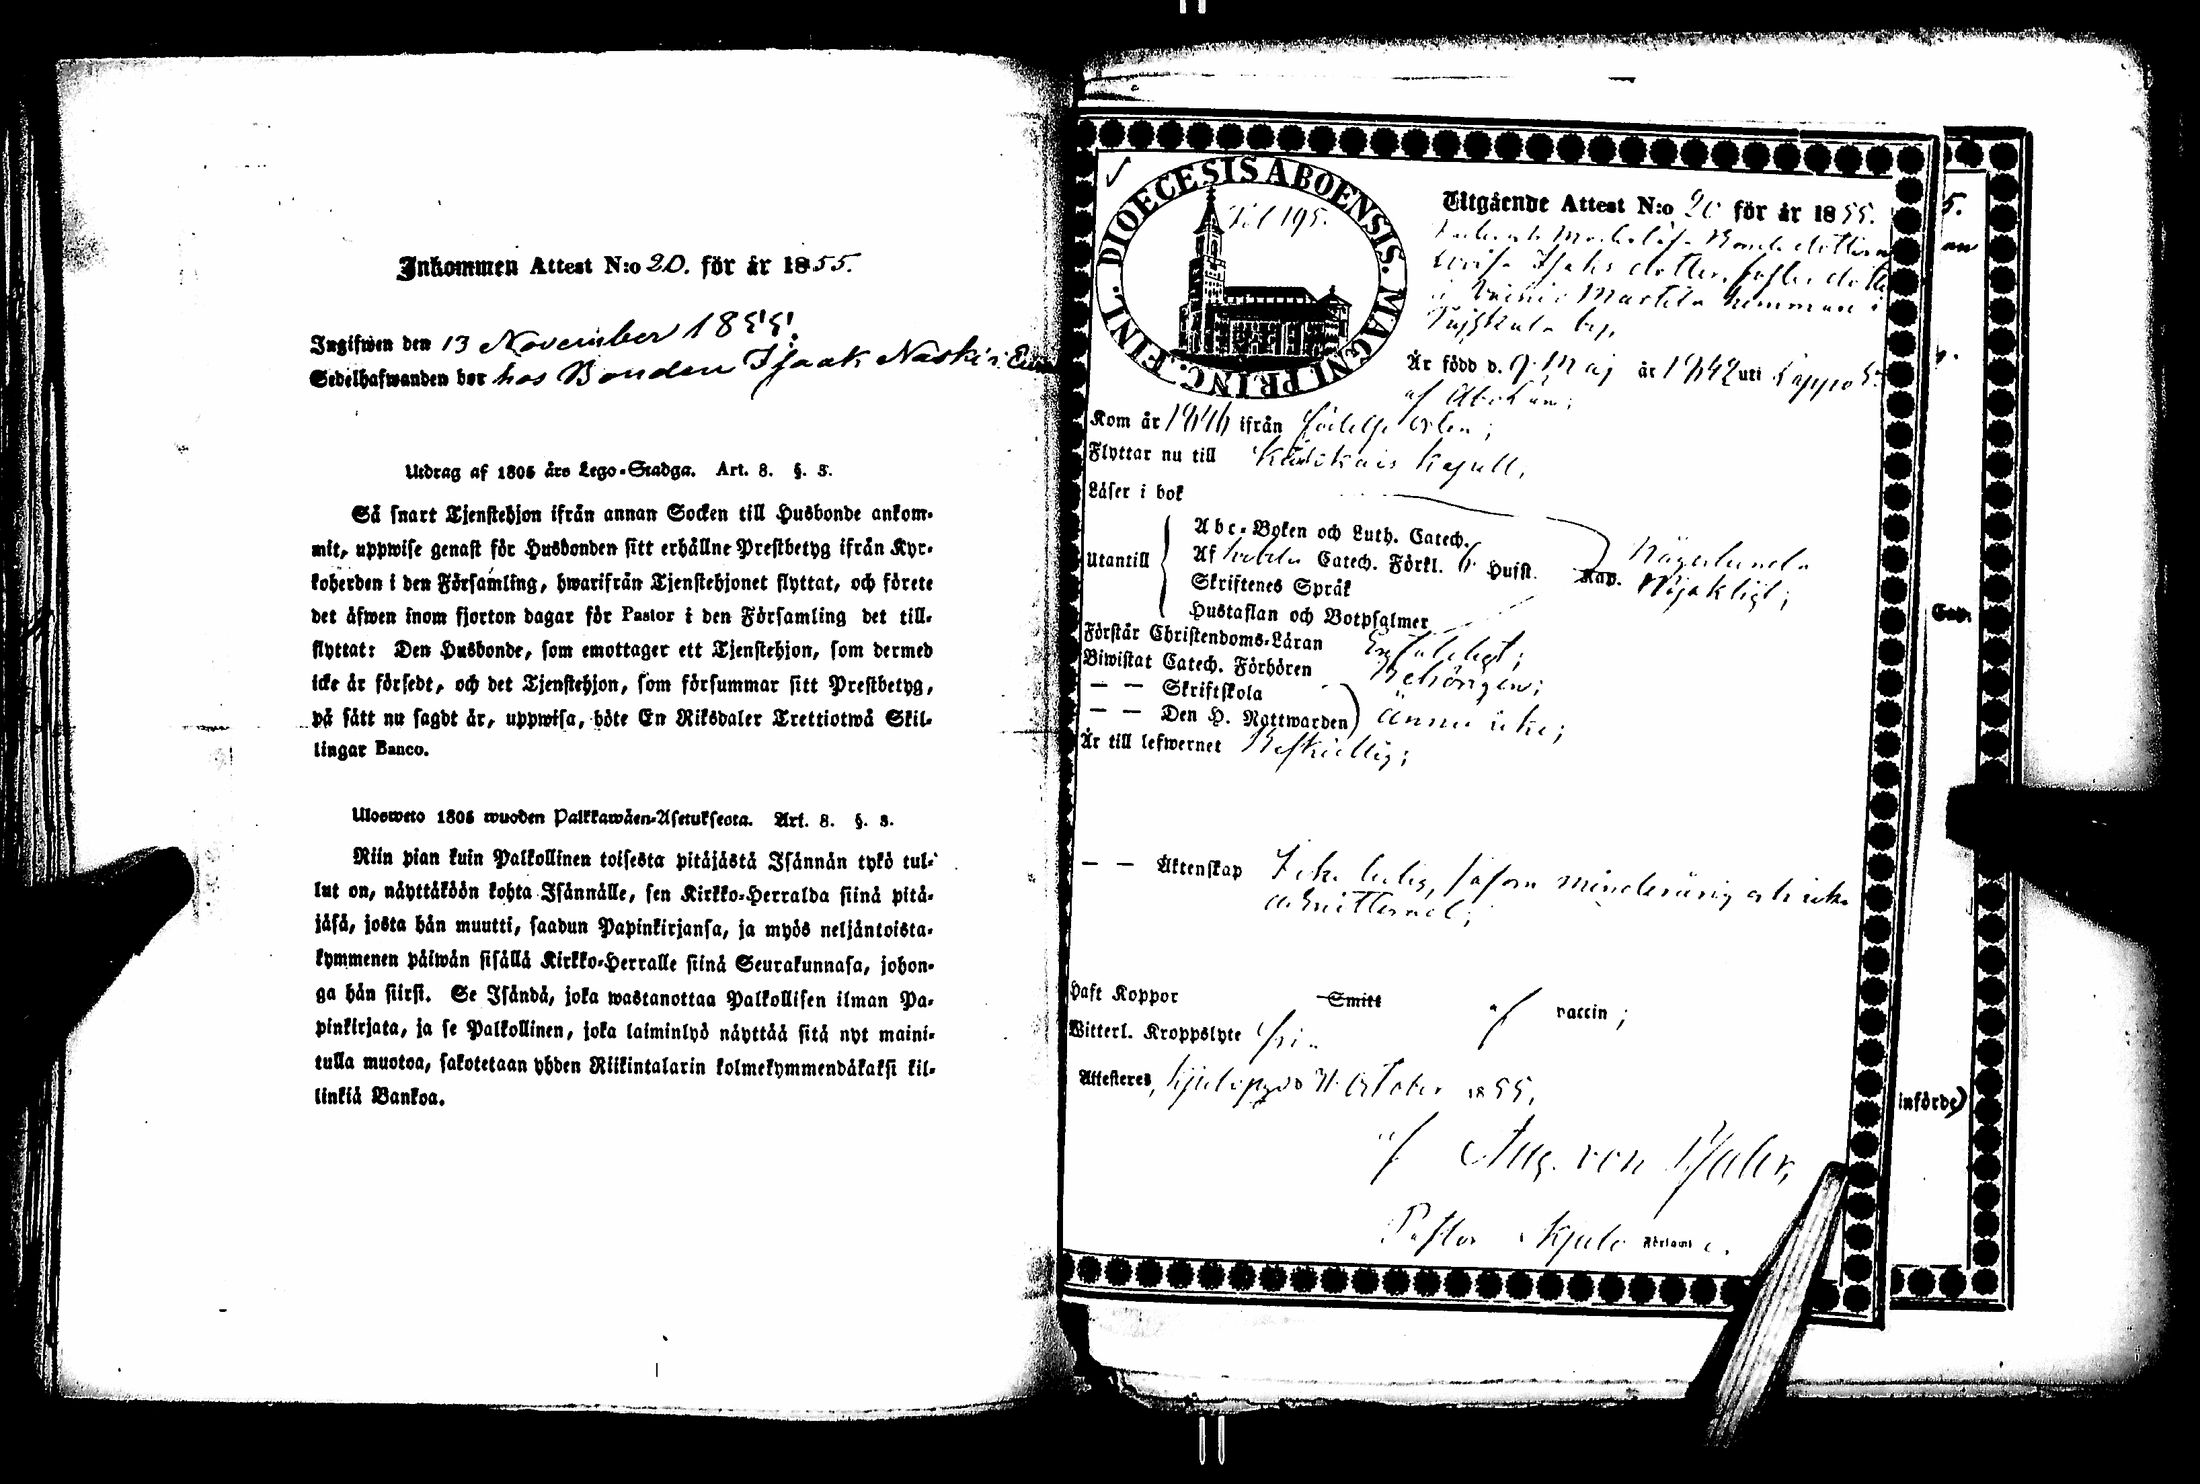 Inkommen Attest N:o 20. för år 1855.
Ingifwen den 13 November 1855.
Sedelhafwanden bor hos Bonden Isaak Naski i
Utdrag af 1805 års Lego-Stadga. Art. 8. §. 3.
Så snart Tjenstehjon ifrån annan Socken till Husbonde ankom-
mit, uppwise genast för Husbonden sitt erhållne Prestbetyg ifrån Kyr-
koherden i den Församling, hwarifrån Tjenstehjonet flyttat, och förete
det äfwen inom fjorton dagar för Pastor i den Församling det till-
flyttat: Den Husbonde, som emottager ett Tjenstehjon, som dermed
icke är försedt, och det Tjenstehjon, som försummar sitt Prestbetyg,
på sätt nu sagdt är, uppwisa, böte En Riksdaler Trettiotwå Skil-
lingar Banco.
Ulosweto 1805 wuoden Palkkawäen-Asetuksesta. Art. 8. §. 3.
Niin pian kuin Palkollinen toisesta pitäjästä Isännän tykö tul-
lut on, näyttäköön kohta Isännälle, sen Kirkko-Herralda siinä pitä-
jäsä, josta hän muutti, saadun Papinkirjansa, ja myös neljäntoista-
kymmenen päiwän sisällä Kirkko-Herralle siinä Seurakunnasa, johon-
ga hän siirsi. Se Isändä, joka wastanottaa Palkollisen ilman Pa-
pinkirjata, ja se Palkollinen, joka laiminlyö näyttää sitä nyt maini-
tulla muotoa, sakotetaan yhden Riikintalarin kolmekymmendäkaksi kil-
linkiä Bankoa.
DIOECESIS ABOENSIS. MAGNI PRINC. FINL.
Fol 195.
Utgående Attest N:o 20 för år 1855.
Bondedottern
Lovisa Isaks dotter,
Martila hemman i
by,
Är född d. 9 Maj år 1842 uti Lappo S:n
af Åbo län;
Kom år 1846 ifrån födelse orten;
Flyttar nu till Kapell,
Läser i bok
Utantill
Abc-Boken och Luth. Catech.
Af Catech. Förkl. 6 Hufst. Kap.
Nöjaktligt;
Skriftenes Språk
Hustaflan och Botpsalmer
Förstår Christendoms-Läran Enfaldigt;
Biwistat Catech. Förhören Behörigen;
— — Skriftskola
— — Den H. Nattwarden ännu icke;
Är till lefwernet Beskedlig;
— — Äktenskap Icke ledig, såsom minderårig och icke
admitterad;
Haft Koppor Smitt af vaccin;
Witterl. Kroppslyte fri
Attesteres, October 1855.
af Aug. von Pfaler,
Pastor i Kjulo Församl.
5.
Cap.
införde)